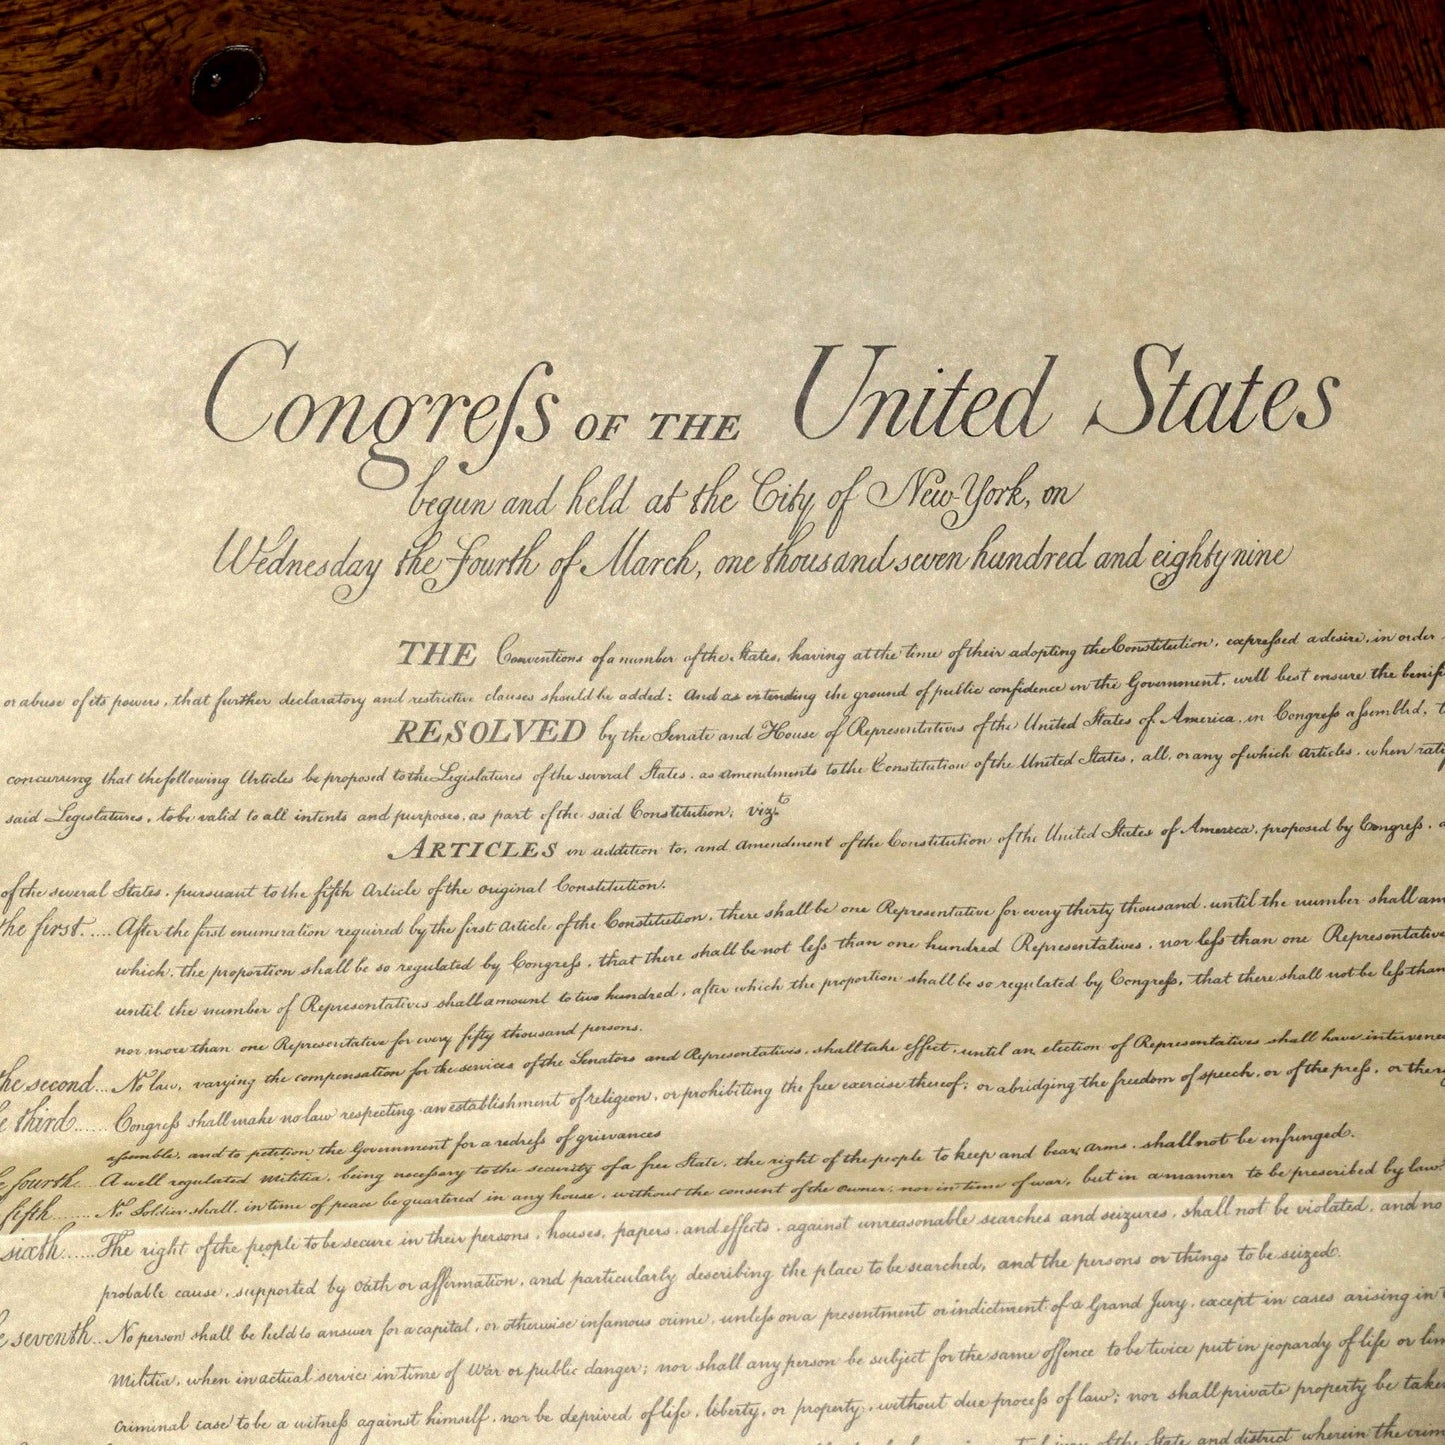 Congreſs OF THE United States
begun and held at the City of New-York, on
Wednesday the Fourth of March, one thousand seven hundred and eighty nine
THE Conventions of a number of the States, having at the time of their adopting the Constitution, expreſsed a desire, in order
or abuse of its powers, that further declaratory and restrictive clauses should be added: And as extending the ground of public confidence in the Government, will best ensure the benif
RESOLVED by the Senate and House of Representatives of the United States of America, in Congreſs aſsembled, t
concurring that the following Articles be proposed to the Legislatures of the several States, as amendments to the Constitution of the United States, all, or any of which Articles, when rati
said Legislatures, to be valid to all intents and purposes, as part of the said Constitution; vizt
ARTICLES in addition to, and Amendment of the Constitution of the United States of America, proposed by Congreſs, a
of the several States, pursuant to the fifth Article of the original Constitution.
the first..... After the first enumeration required by the first Article of the Constitution, there shall be one Representative for every thirty thousand, until the number shall am
which, the proportion shall be so regulated by Congreſs, that there shall be not leſs than one hundred Representatives, nor leſs than one Representative
until the number of Representatives shall amount to two hundred, after which the proportion shall be so regulated by Congreſs, that there shall not be leſs than
nor more than one Representative for every fifty thousand persons.
the second... No law, varying the compensation for the services of the Senators and Representatives, shall take effect, until an election of Representatives shall have intervene
e third...... Congreſs shall make no law respecting an establishment of religion, or prohibiting the free exercise thereof; or abridging the freedom of speech, or of the preſs, or the
aſsemble, and to petition the Government for a redreſs of grievances
e fourth.. A well regulated Militia, being neceſsary to the security of a free State, the right of the people to keep and bear Arms, shall not be infringed.
fifth...... No Soldier shall, in time of peace be quartered in any house, without the consent of the Owner, nor in time of war, but in a manner to be prescribed by law.
sixth..... The right of the people to be secure in their persons, houses, papers, and effects, against unreasonable searches and seizures, shall not be violated, and no
probable cause, supported by Oath or affirmation, and particularly describing the place to be searched, and the persons or things to be seized.
e seventh.. No person shall be held to answer for a capital, or otherwise infamous crime, unleſs on a presentment or indictment of a Grand Jury, except in cases arising in
Militia, when in actual service in time of War or public danger; nor shall any person be subject for the same offence to be twice put in jeopardy of life or lim
criminal case to be a witneſs against himself, nor be deprived of life, liberty, or property, without due proceſs of law; nor shall private property be take
of the State and district wherein the crim